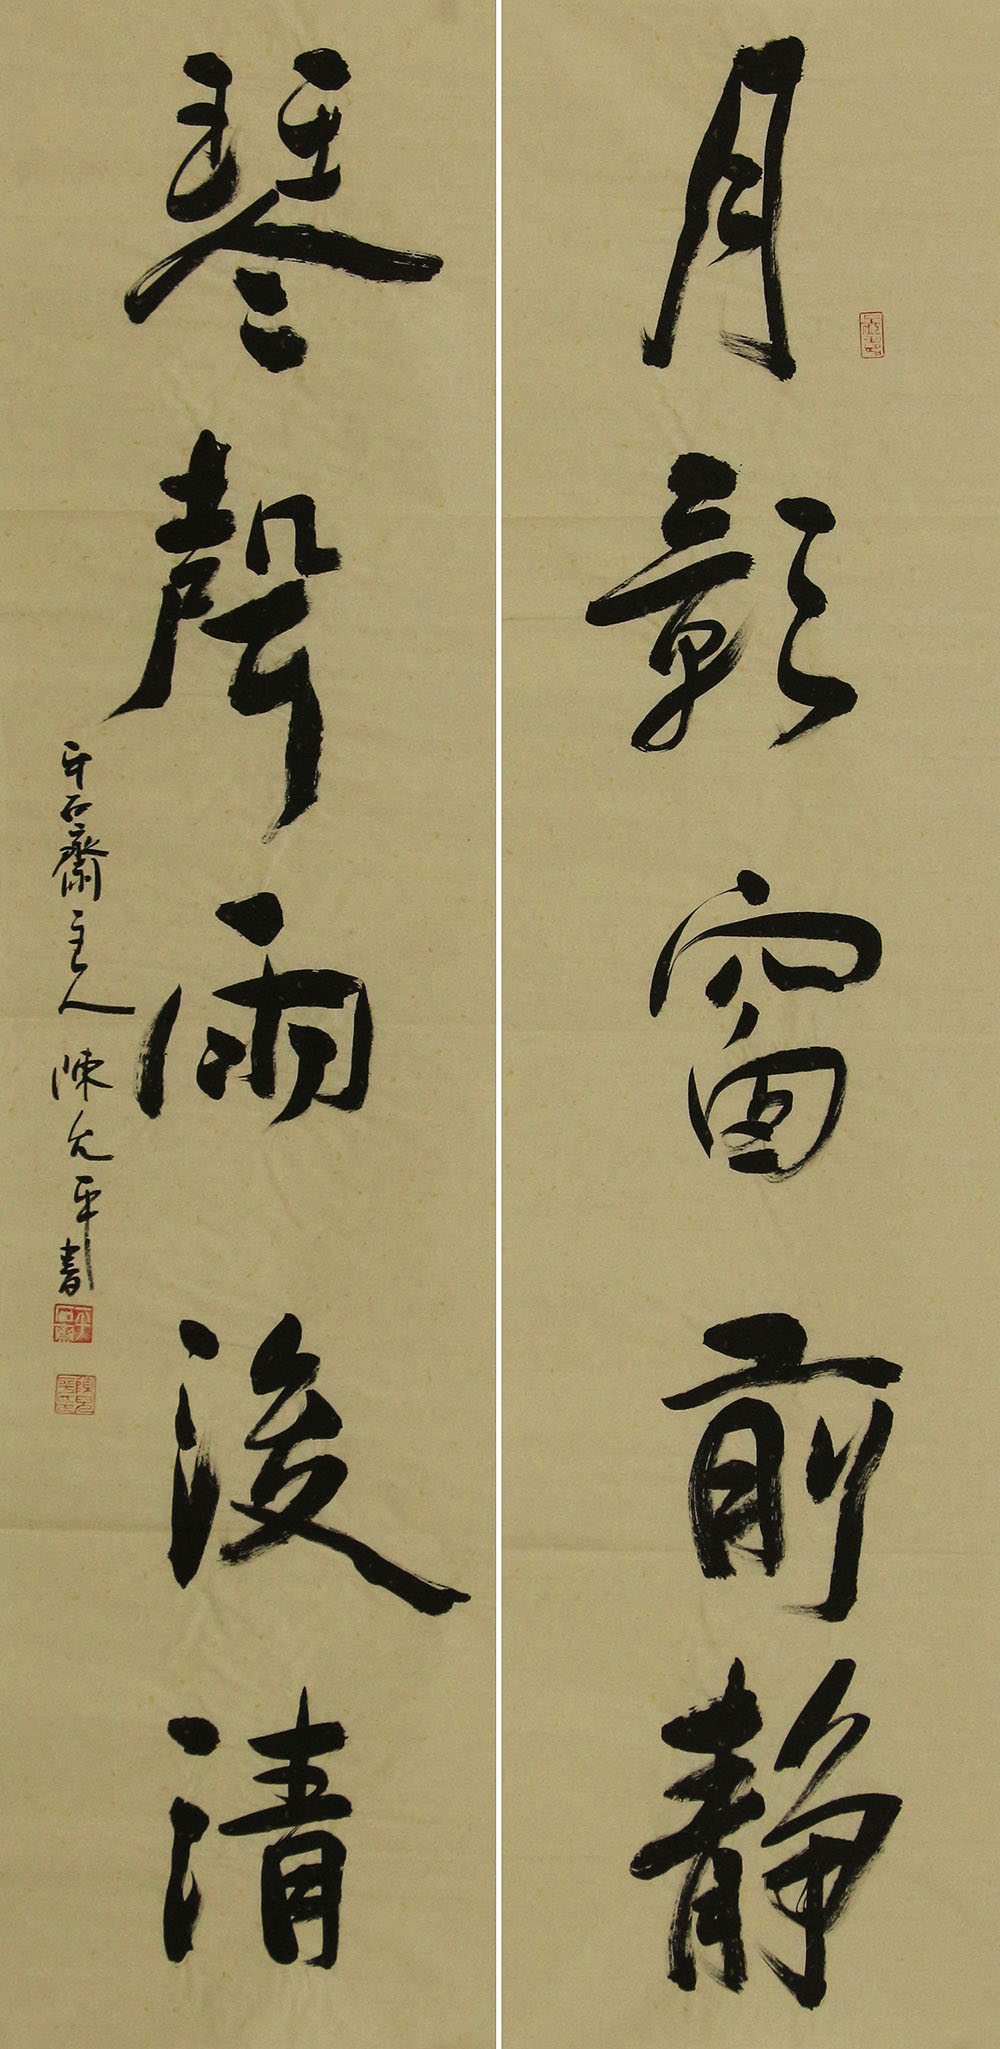 月影窗前靜
琴聲雨後清
平石齋主人 陳允平書